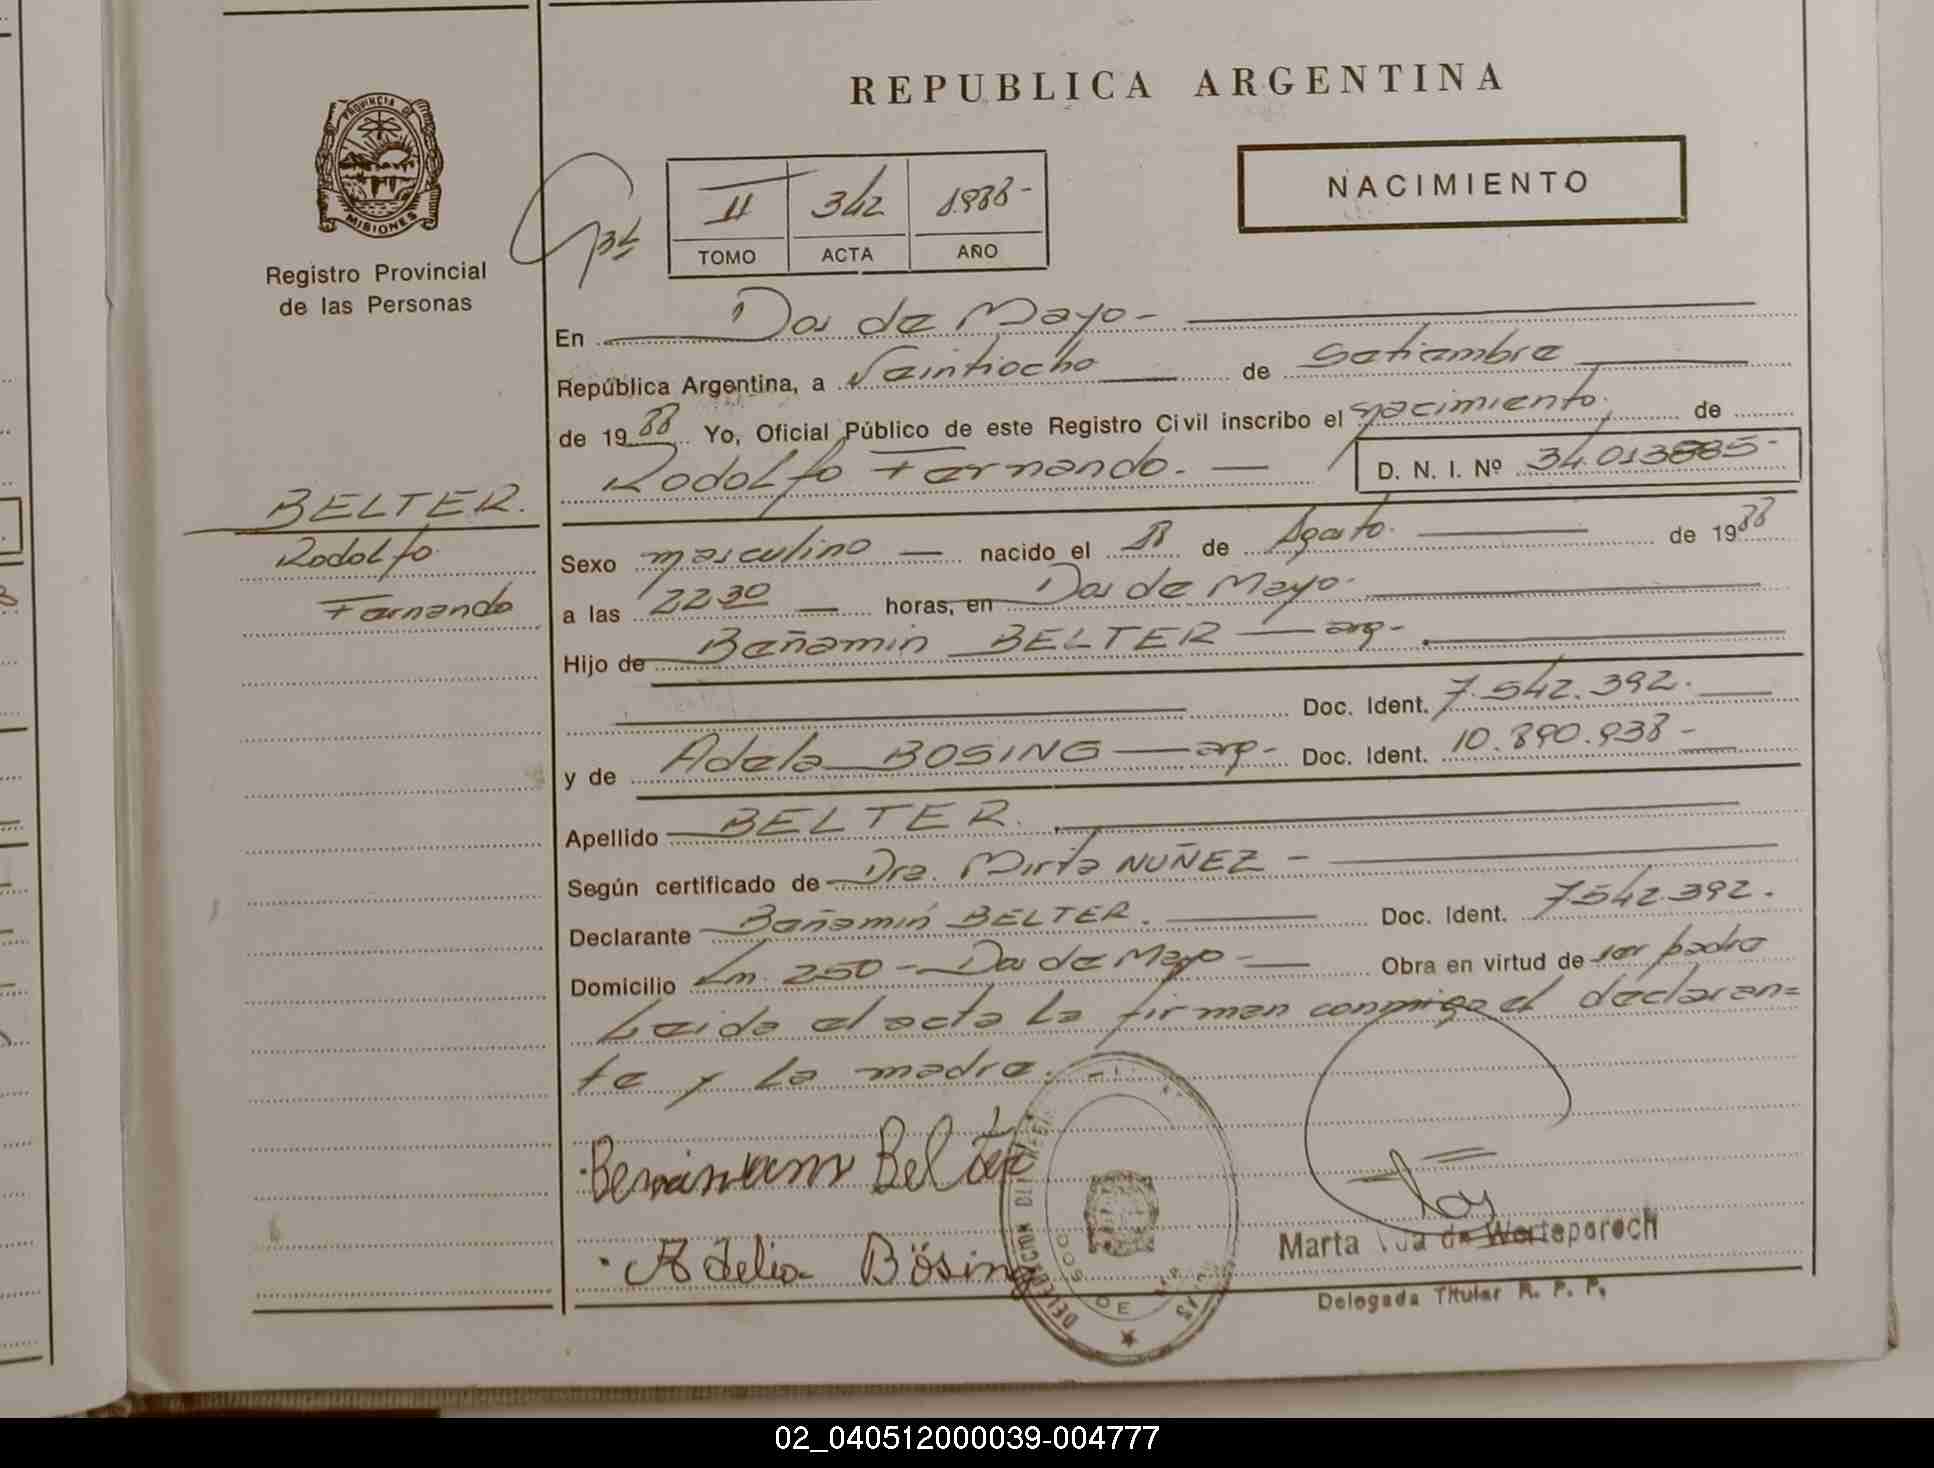 REPUBLICA ARGENTINA
NACIMIENTO
PROVINCIA DE
MISIONES
Registro Provincial
de las Personas
II 342 1.988-
TOMO ACTA AÑO
En Dos de Mayo-
República Argentina, a Veintiocho de Setiembre
de 1988 Yo, Oficial Público de este Registro Civil inscribo el nacimiento de
Rodolfo Fernando. D. N. I. Nº
BELTER.
Rodolfo
Fernando
Sexo masculino nacido el de Agosto. de 1988
a las 22 30 horas, en Dos de Mayo-
Hijo de Beñamin BELTER arg-
Doc. Ident. 7.542.392.
y de Adela BOSING arg- Doc. Ident. 10.890.938-
Apellido BELTER.
Según certificado de Dra. Mirta NUÑEZ -
Declarante Beñamin BELTER. Doc. Ident. 7.542.392.
Domicilio Km. 250 - Dos de Mayo - Obra en virtud de ser padre
Leida el acta la firman conmigo el declaran=
te y la madre.
Belter
Adelia Bösing
Marta de Werteparoch
Delegada Titular R. P. P.
02_040512000039-004777